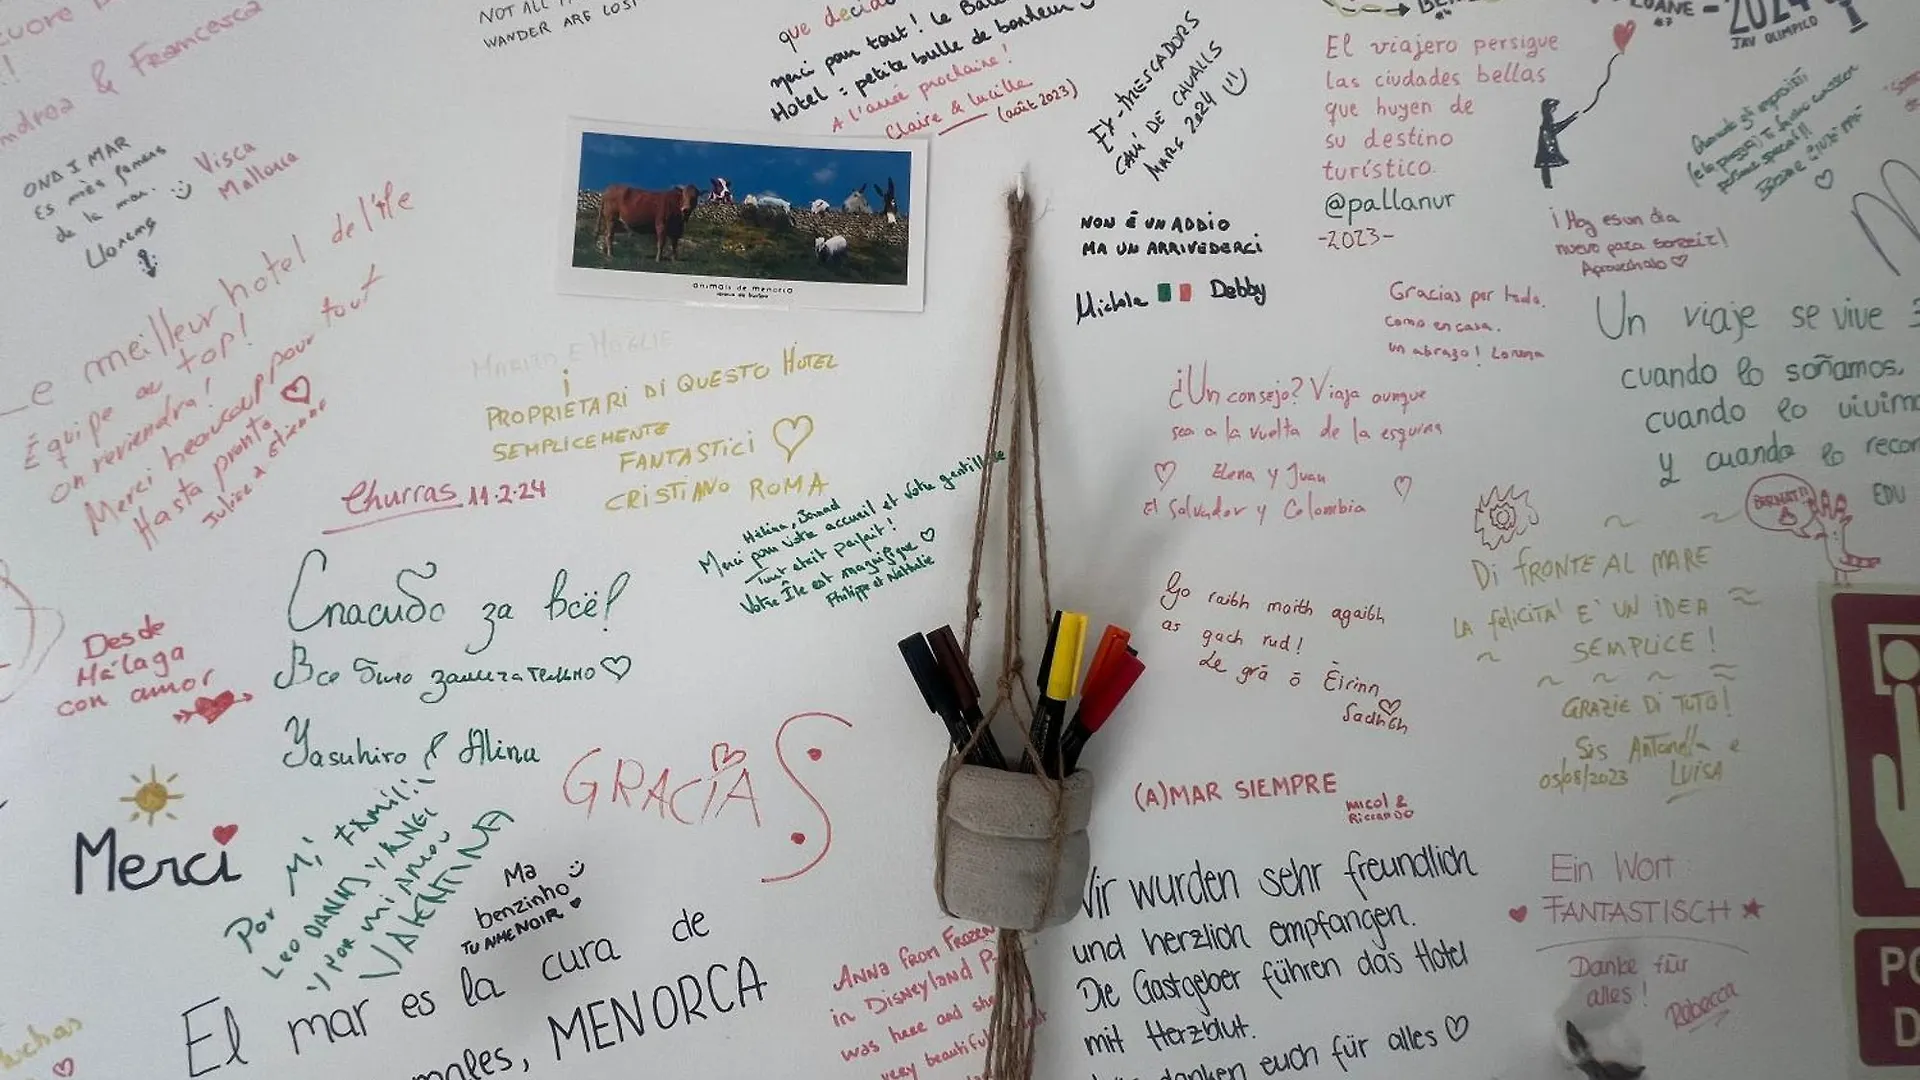 NOT ALL
WANDER ARE LOST
que
merci pour tout! le
Hotel = petite bulle de bonheur
A l'année prochaine!
Claire & Lucille
(août 2023)
& Francesca
ONA I MAR
ES més
de la mar.
Llorenç
Visca
Mallorca
Le meilleur hotel de l'île
Équipe au top!
on reviendra!
Merci beaucoup pour tout
Hasta pronto
animals de menorca
EX-TRESCADORS
CAMÍ DE CAVALLS
MARÇ 2024
NON È UN ADDIO
MA UN ARRIVEDERCI
Debby
El viajero persigue
las ciudades bellas
que huyen de
su destino
turístico.
@pallanur
-2023-
2024
JAV OLIMPICO
¡Hoy es un dia
nuevo para
Aprovechalo
Gracias por todo.
como en casa.
un abrazo! Lorena
Un viaje se vive 3
cuando lo soñamos,
cuando lo vivimo
y cuando lo recor
EDU
I
PROPRIETARI DI QUESTO HOTEL
SEMPLICEMENTE
FANTASTICI
CRISTIANO ROMA
Churras 11.2.24
Merci pour votre accueil et votre gentillesse
Tout etait parfait!
Votre Île est magnifique
Philippe et Nathalie
¿Un consejo? Viaja aunque
sea a la vuelta de la esquina
Elena y Juan
El Salvador y Colombia
Спасибо за всё!
Все было замечательно
Yasuhiro & Alina
Desde
Málaga
con amor
Go raibh moith agaibh
as gach rud!
Le grá ó Éirinn
Sadhbh
DI FRONTE AL MARE
LA FELICITA' E' UN IDEA
SEMPLICE!
GRAZIE DI TUTO!
05/08/2023
LUISA
Merci
GRACIAS
(A)MAR SIEMPRE
MICOL &
RICCARDO
POR MI FAMILI
LEO DANNY Y ANGE
Y POR MI AMOR
VALENTINA
Ma
benzinho
TU AIME NOIR
El mar es la cura de
males, MENORCA
ANNA from FROZEN
in DISNEYLAND P
was here and she
very beautiful
Wir wurden sehr freundlich
und herzlich empfangen.
Die Gastgeber führen das Hotel
mit Herzblut.
danken euch für alles
Ein Wort
FANTASTISCH
Danke für
alles!
Rebecca
PO
D